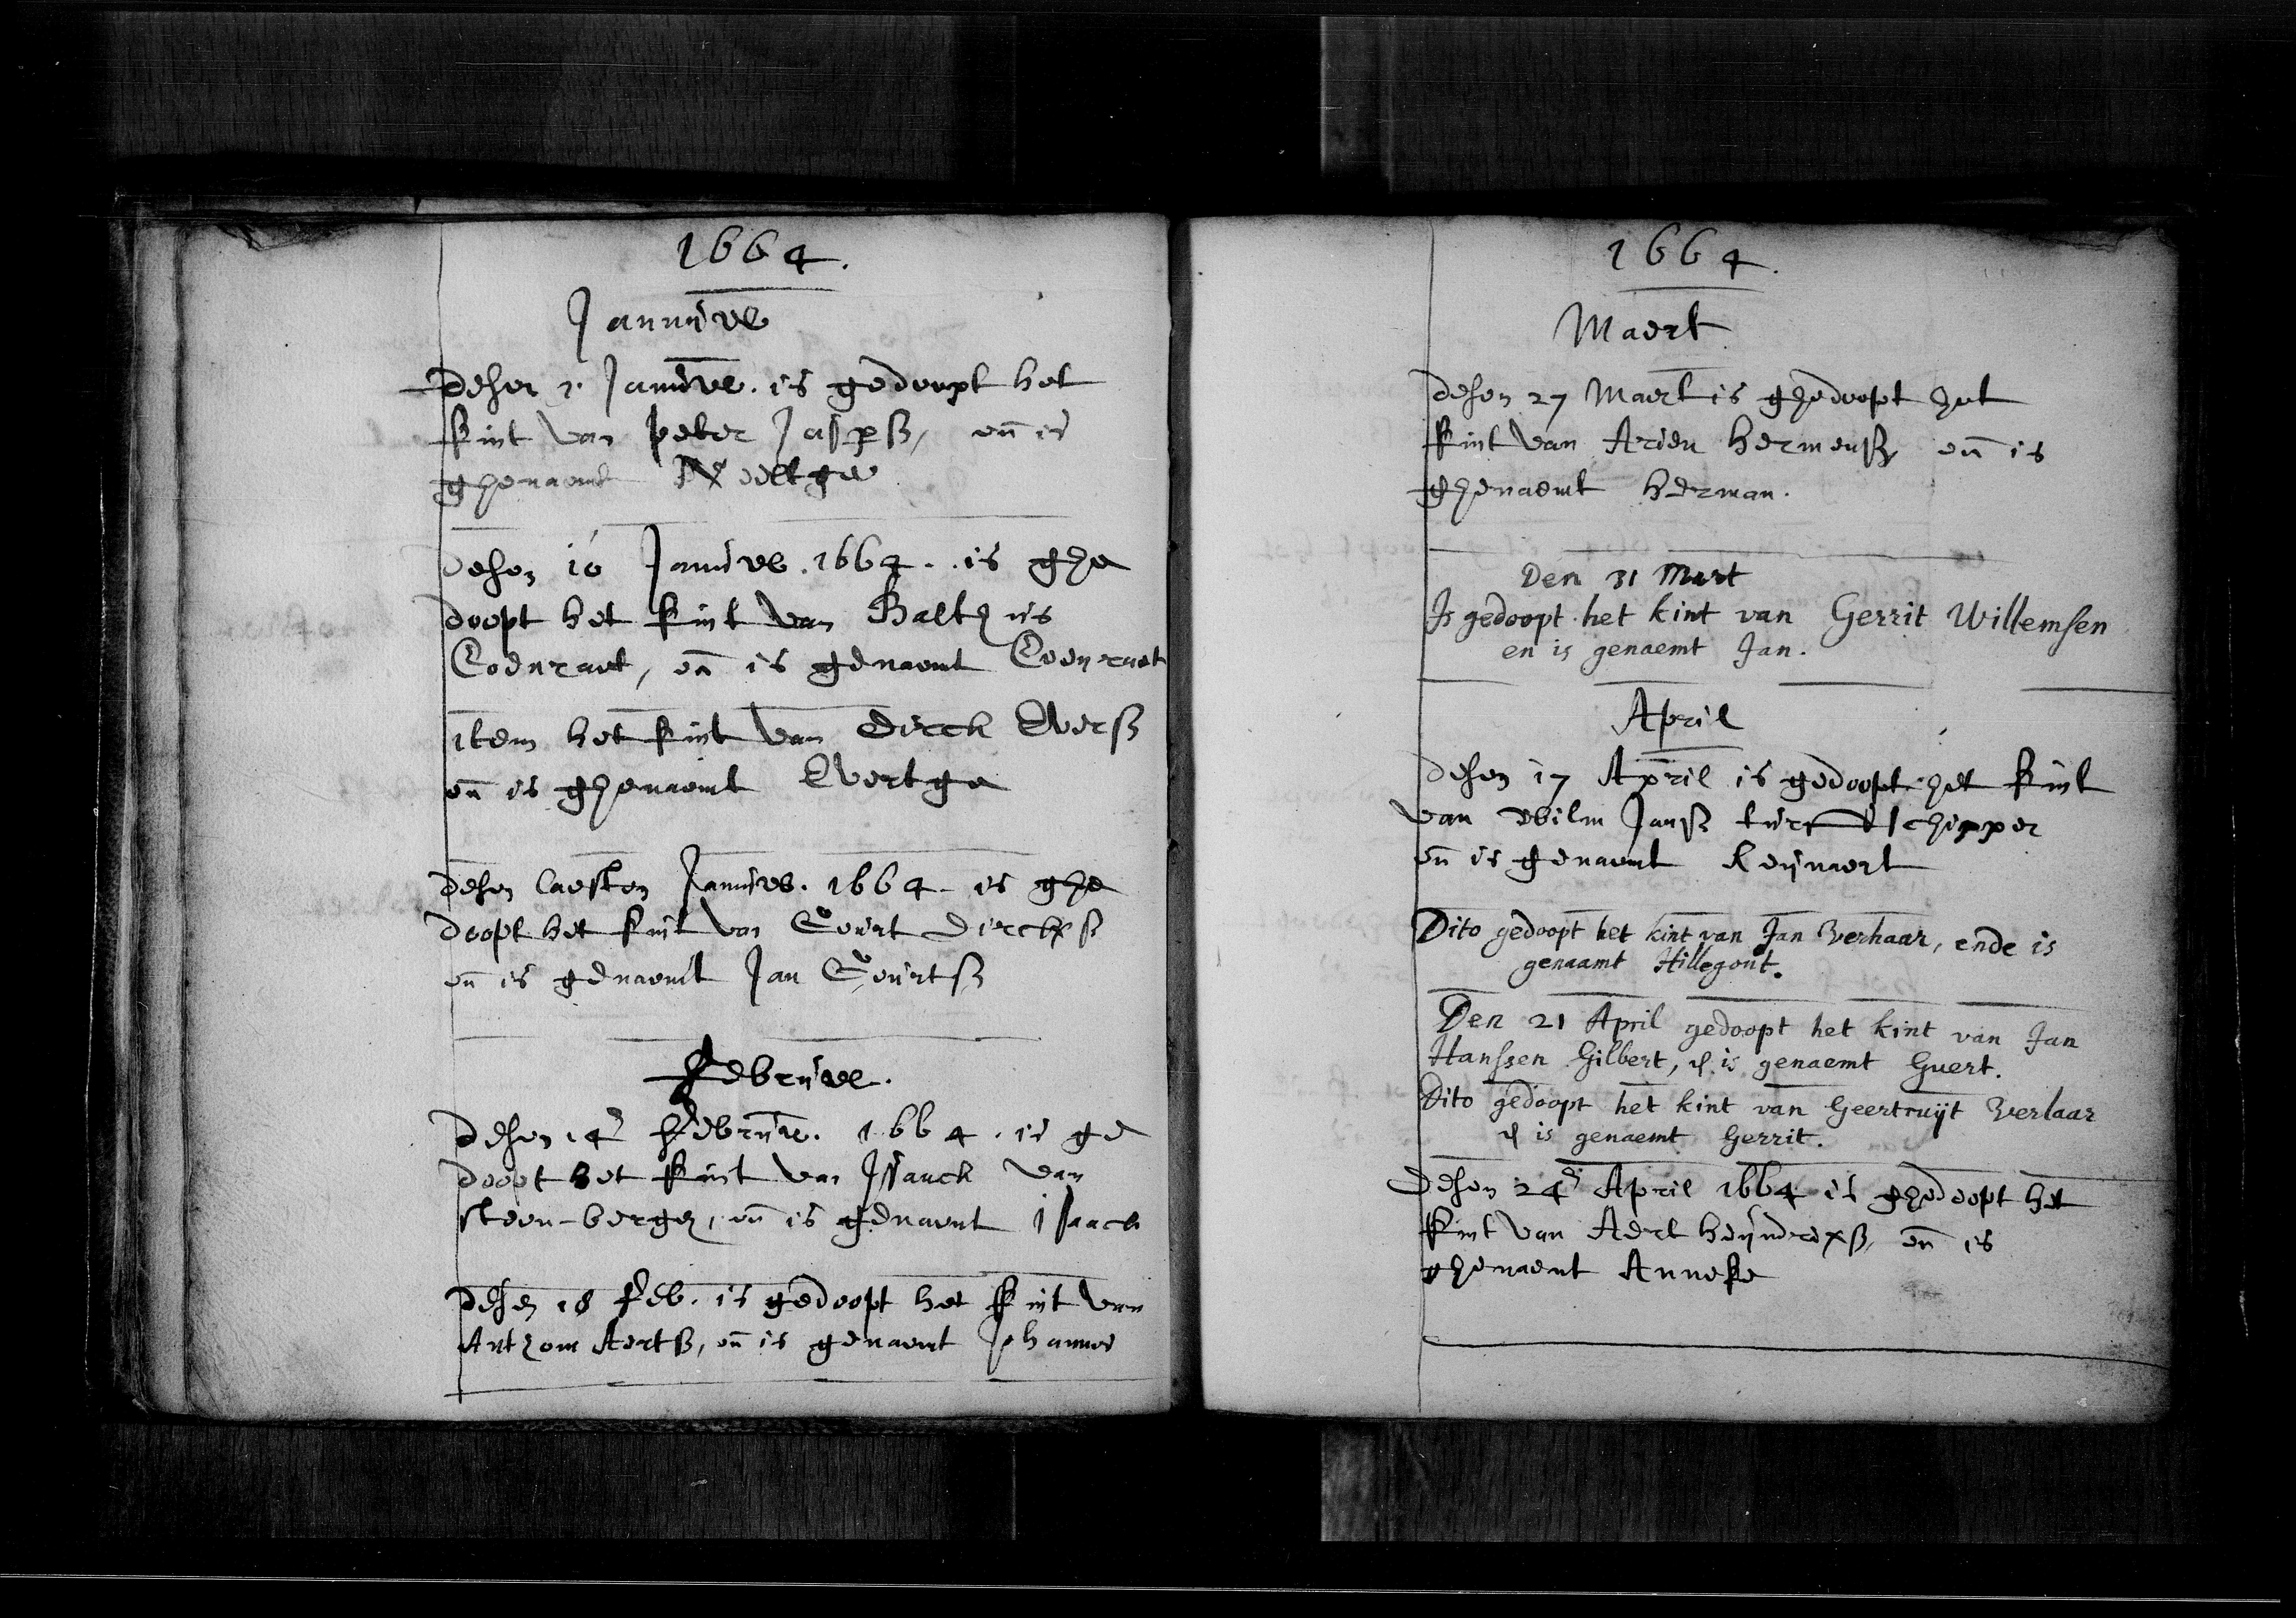 1664.
Januwe
desen 1. Januwe. is gedoopt het
kint van peter Jasperss, en is
ghenaemt Neeltge
desen 10 Januwe. 1664. is ghe
doopt het kint van Balthus
Coenraet, en is genaemt Coenraet
item het kint van Dirck Everss
en is ghenaemt Evertge
desen laesten Januwe. 1664. is ghe
doopt het kint van Goürt Dirckss
en is genaemt Jan Goürtss
Februwe.
desen 14 Februwe. 1664. is ge
doopt het kint van Issack van
steen-bergen, en is genaemt isaack
desen 18 Feb. is gedoopt het kint van
Anthoni Aertss, en is genaemt Johannes
1664.
Maert
desen 27 Maert is ghedoopt het
kint van Arien hermenss, en is
ghenaemt herman.
Den 31 Mart
Is gedoopt het kint van Gerrit Willemsen
en is genaemt Jan.
April
desen 17 April is gedoopt het kint
van Wilm Janss turfschipper
en is genaemt Reijnaert
Dito gedoopt het kint van Jan Verhaar, ende is
genaamt Hillegont.
Den 21 April gedoopt het kint van Jan
Hanssen Gilbert, & is genaemt Guert.
Dito gedoopt het kint van Geertruijt Verlaar
& is genaemt Gerrit.
Desen 24 April 1664 is ghedoopt het
kint van Aert heijndrixss, en is
ghenaemt Anneke